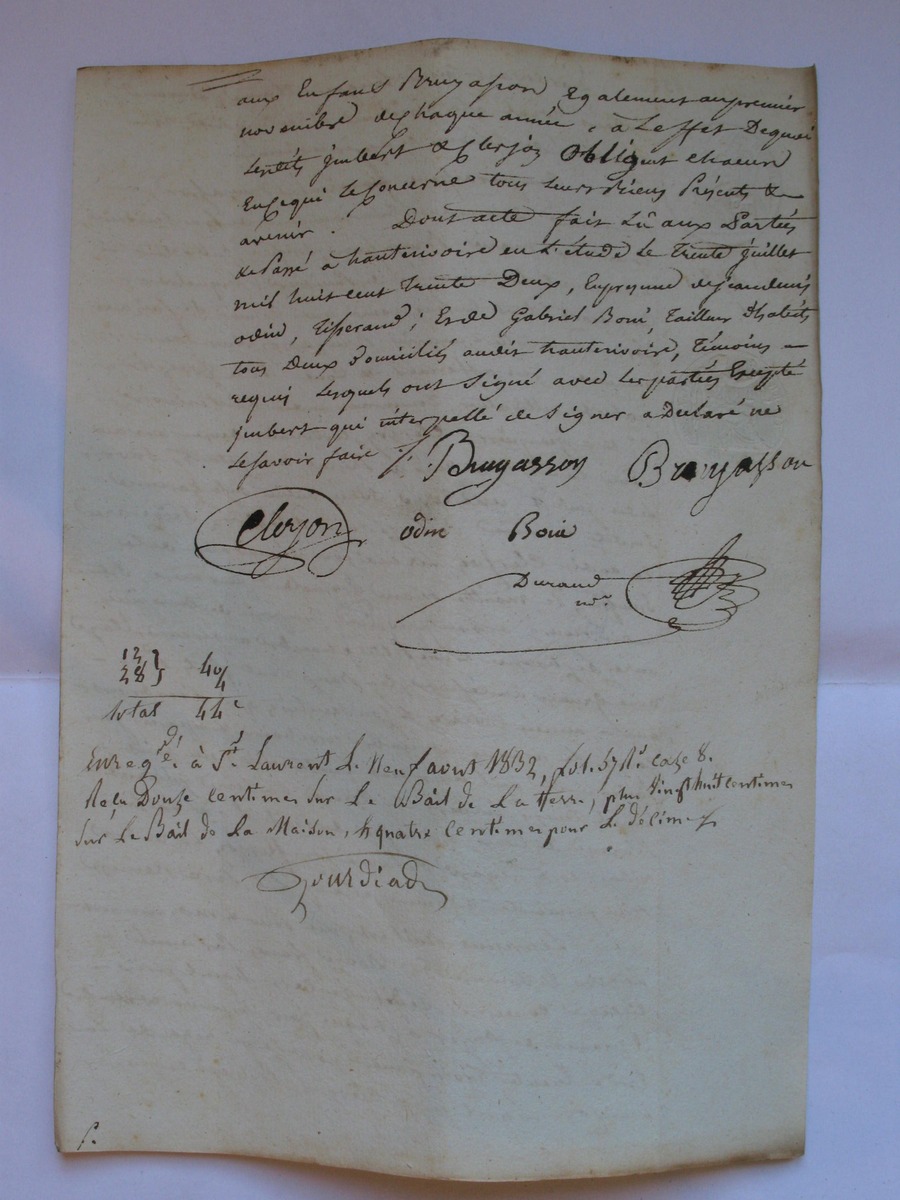 aux Enfants Bruyasson, Egalement au premier
novembre de chaque année, à Leffet Dequoi
Lesdits jmbert & Clerjon Obligent chacun
En ce qui Le Concerne tous Leurs Biens Présents &
avenir. Dont acte fait Lû aux Parties
& Passé à hauterivoire en L'étude Le Trente juillet
mil huit cent Trente Deux, En présence de jean denis
odin, Tisserand; Et de Gabriel Boué, Tailleur D'habits
tous Deux Domiciliés audit hauterivoire, Témoins
requis Lesquels ont Signé avec Les parties Excepté
jmbert qui interpellé de Signer a Déclaré ne
Le savoir faire ./.
Bruyasson Bruyasson
Clerjon odin Boué
Durand
nre
12 } 40
28 } 4
total 44c
Enregré. à St. Laurent Le Neuf aout 1832, fol. 57 Ro. case 8.
Reçu Douze centimes sur Le Bail de La terre, plus Vingt huit centimes
sur Le Bail de La Maison, & quatre centimes pour Le décime